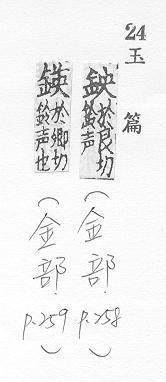 24
玉篇
鉠 於良切 鈴声
(金部. p.258)
鍈 於卿切 鈴声也
(金部. p.259)